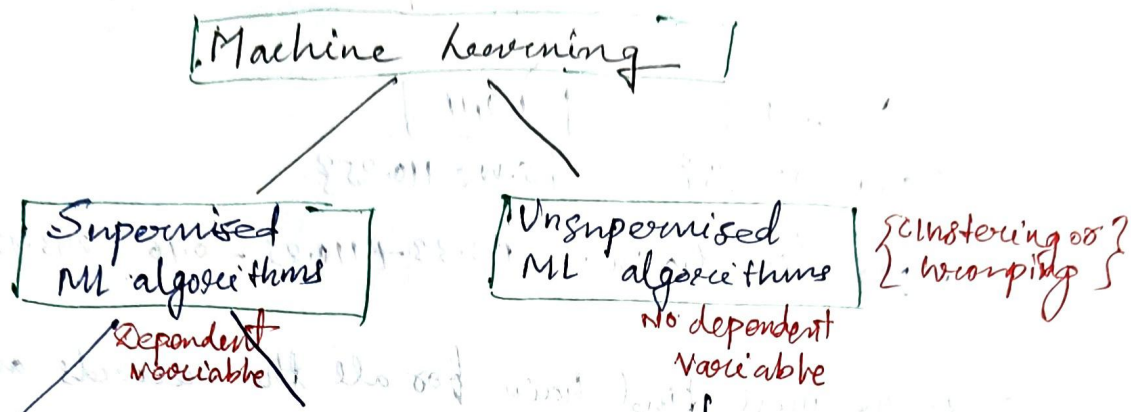 Machine Learning
Supervised
ML algorithms
Dependent
variable
Unsupervised
ML algorithms
No dependent
variable
{Clustering or}
{grouping}